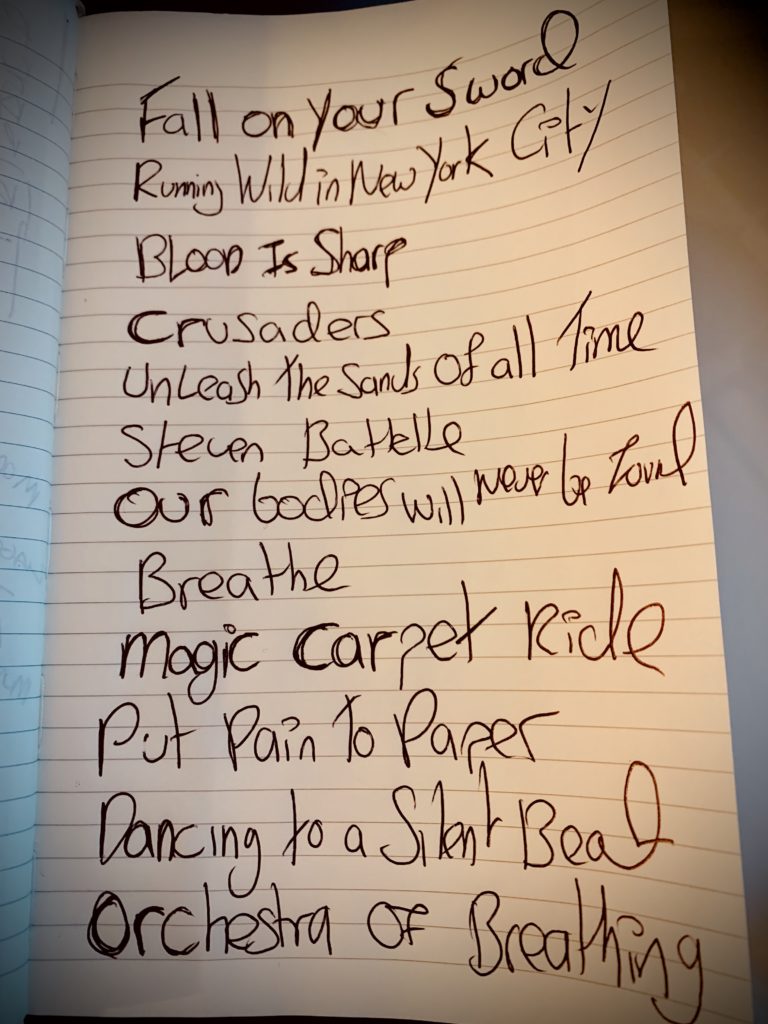 Fall on Your Sword
Running Wild in New York City
Blood Is Sharp
Crusaders
Unleash the Sands Of all Time
Steven Battelle
Our bodies will never be found
Breathe
Magic Carpet Ride
Put Pain To Paper
Dancing to a Silent Beat
Orchestra Of Breathing